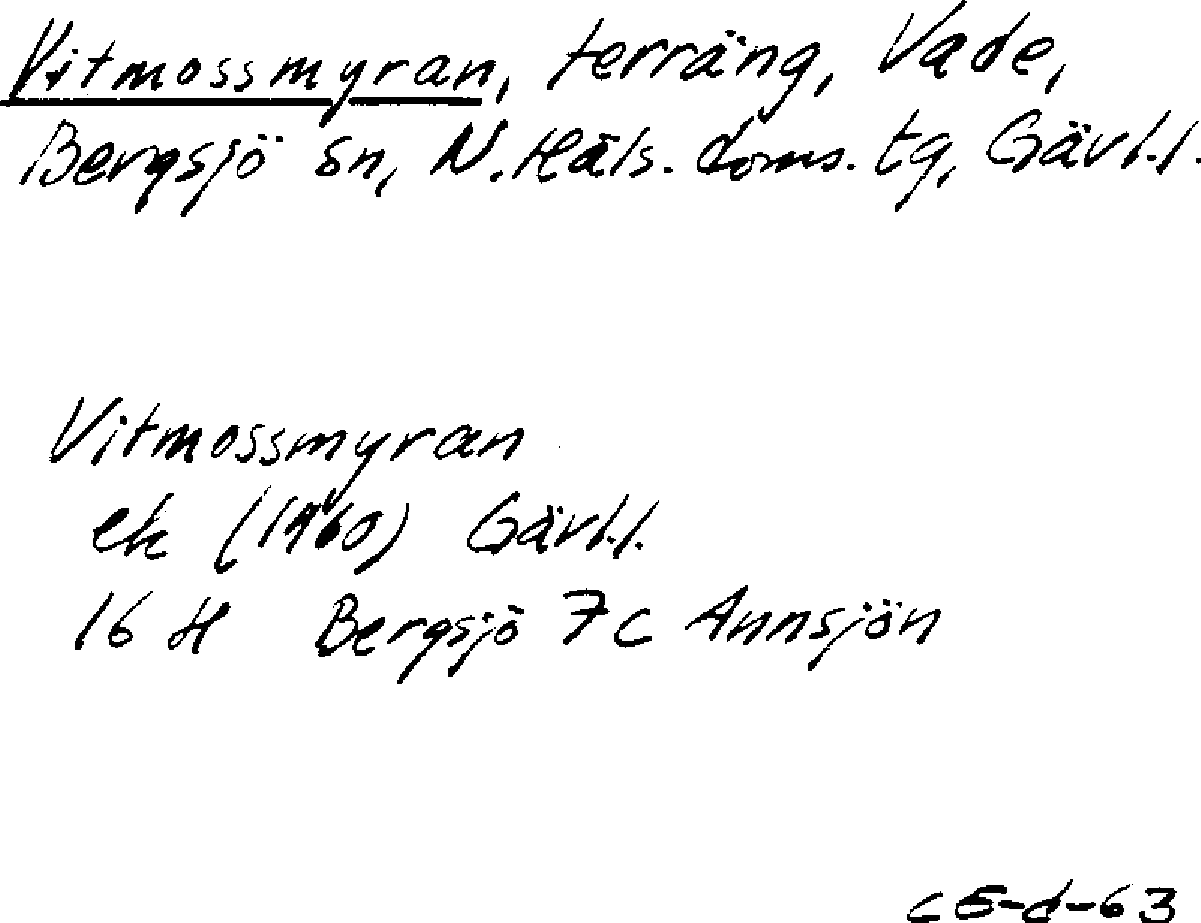 Vitmossmyran, terräng, Vade,
Bergsjö sn, N.Häls. doms. tg, Gävl.l.
Vitmossmyran
ek (1960) Gävl.l.
16 H Bergsjö 7c Annsjön
c5-d-63